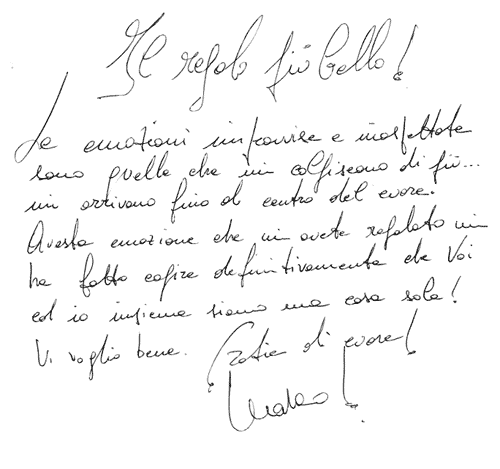 Il regalo più bello!
Le emozioni improvvise e inaspettate
sono quelle che mi colpiscono di più...
mi arrivano fino al centro del cuore.
Questa emozione che mi avete regalato mi
ha fatto capire definitivamente che Voi
ed io insieme siamo una cosa sola!
Vi voglio bene.
Grazie di cuore!